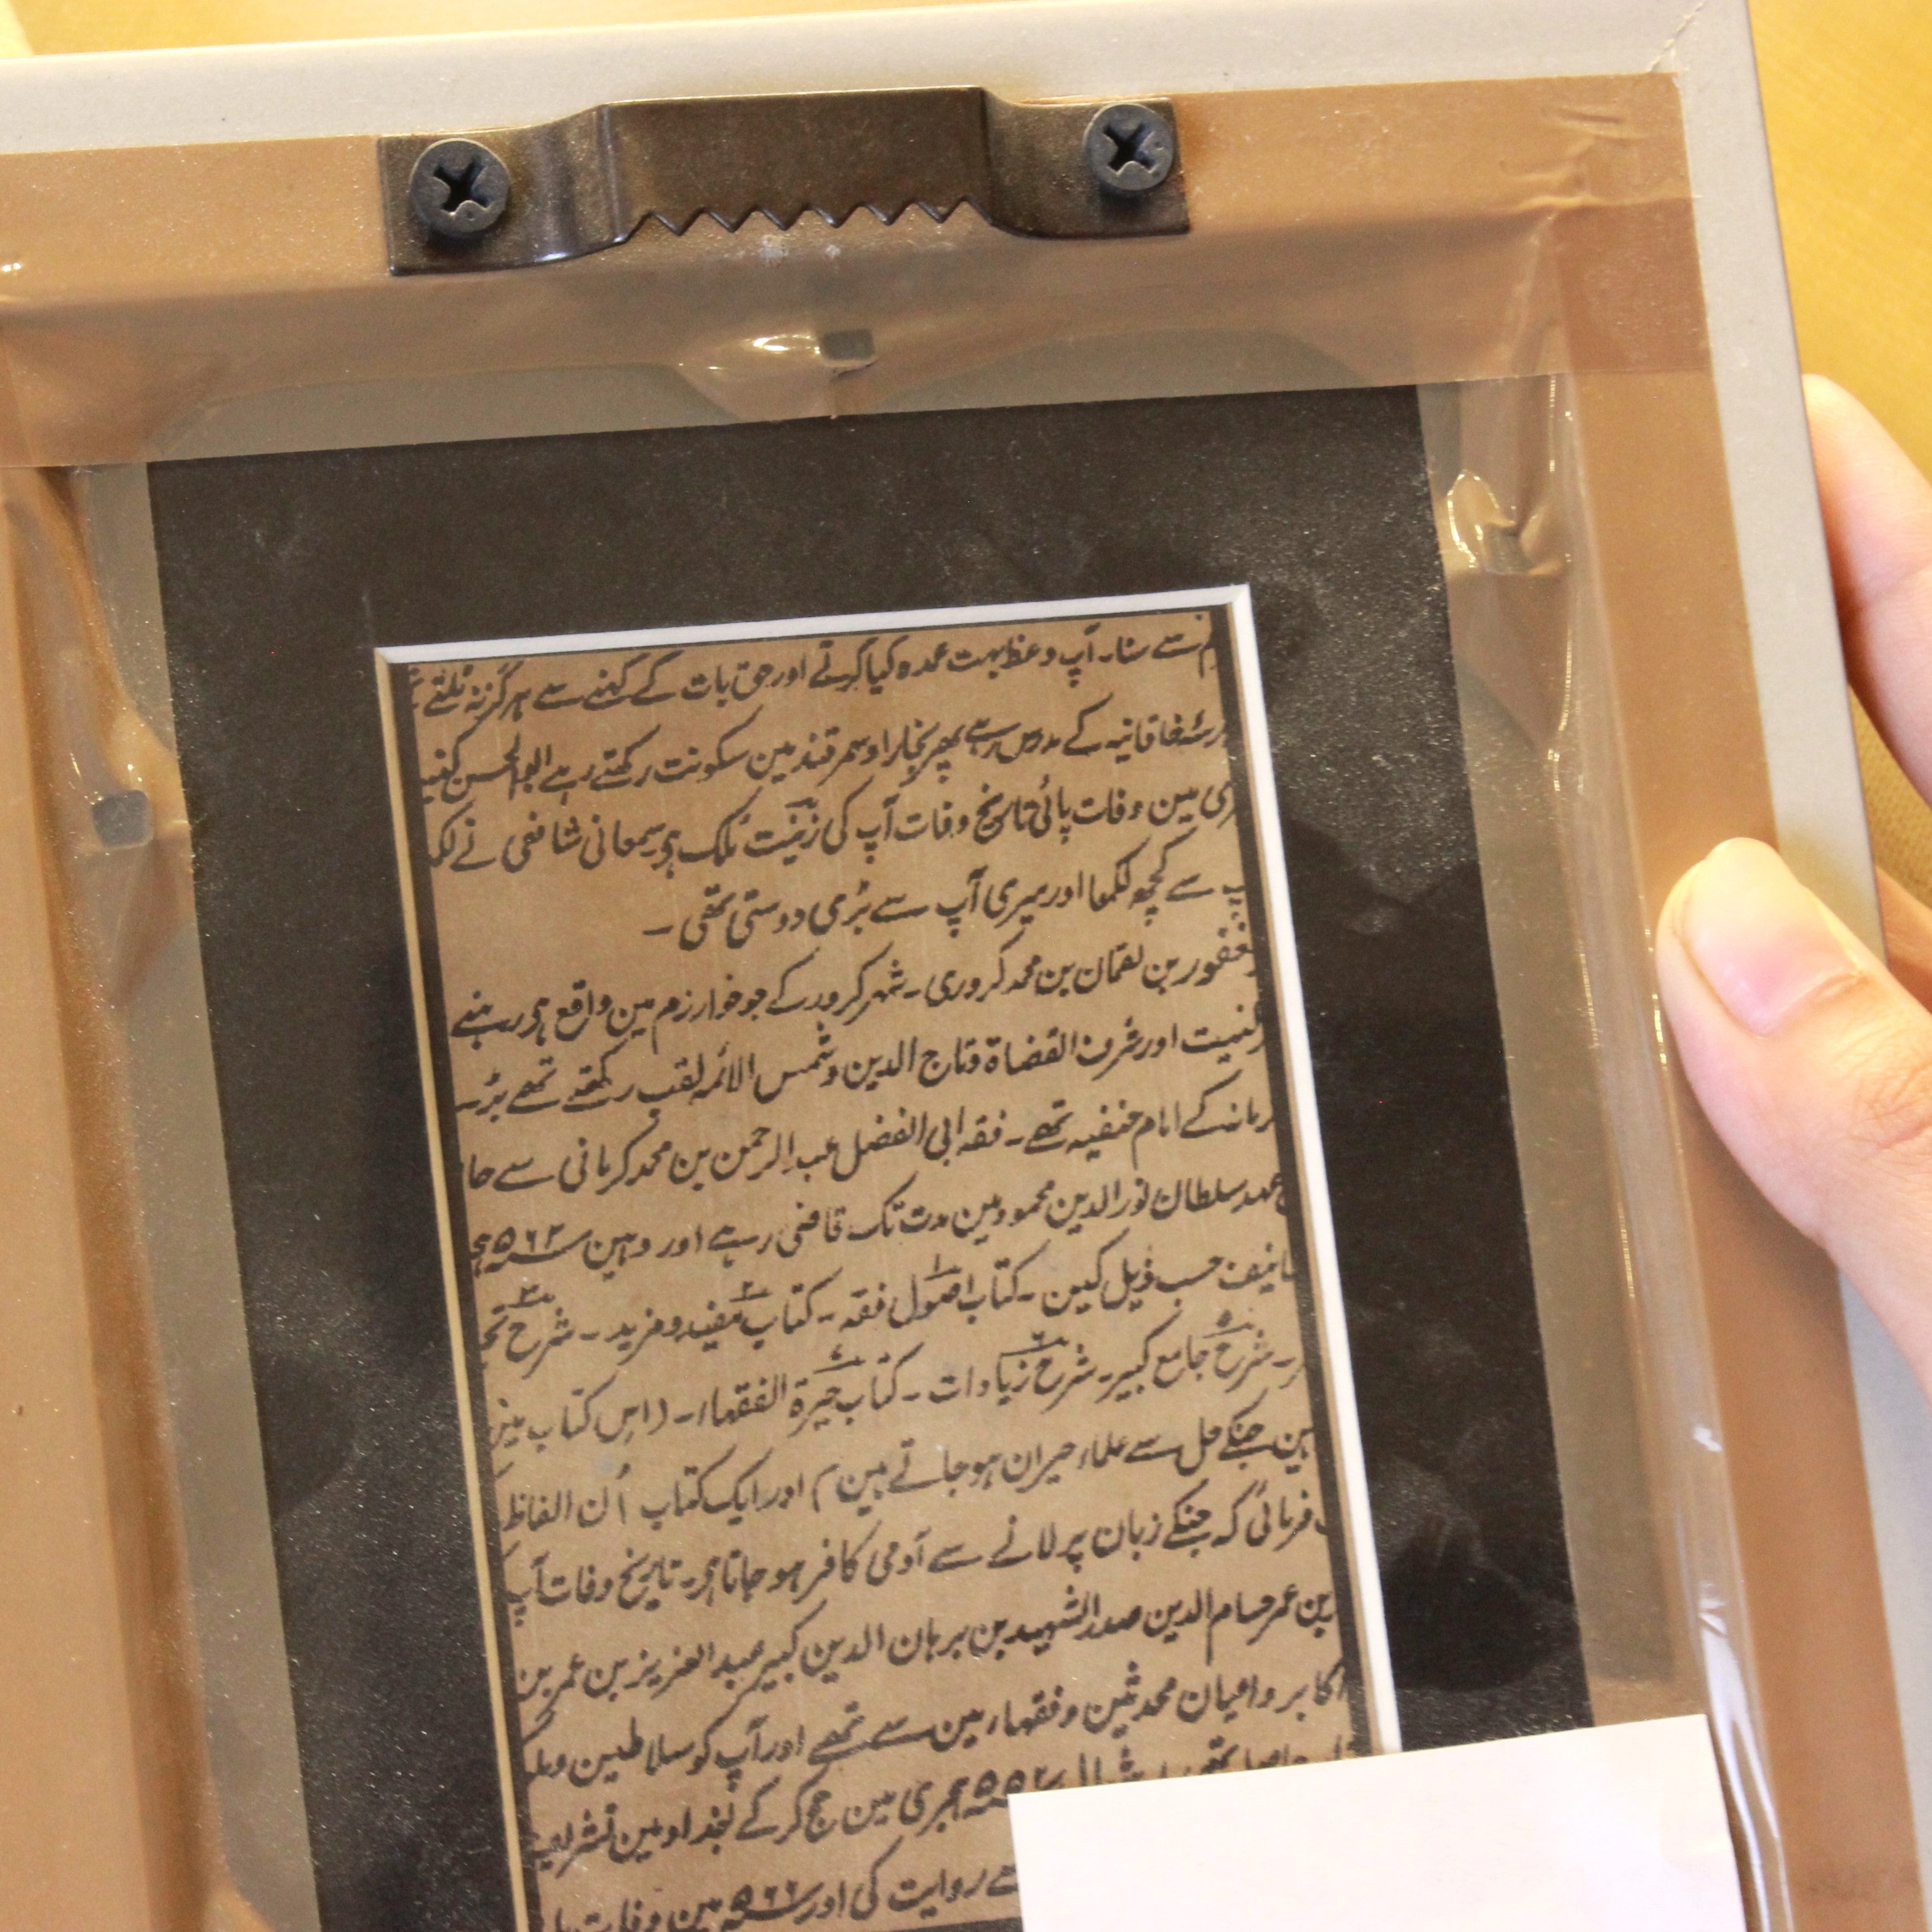 سے سنا۔ آپ وعظ بہت عمدہ کیا کرتے اور حق بات کے کہنے سے ہرگز نہ ٹلتے
خاقانیہ کے مدرس رہے پھر بخارا و سمرقند مین سکونت رکھتے رہے ابو الحسن
مین وفات پائی تاریخ وفات آپ کی زینت ملک ہی سمعانی شافعی نے
سے کچھ لکھا اور میری آپ سے بڑی دوستی تھی۔
بن لقمان بن محمد کروری۔ شہر کرور کے جو خوارزم مین واقع ہی رہنے
اور شرف القضاۃ وتاج الدین وشمس الائمہ لقب رکھتے تھے
کے امام حنفیہ تھے۔ فقہ ابی الفضل عبد الرحمن بن محمد کرمانی سے
عہد سلطان نور الدین محمود مین مدت تک قاضی رہے اور وہین ۵۶۲
حسب ذیل کین۔ کتاب اصول فقہ۔ کتاب مفید و مزید۔ شرح
شرح جامع کبیر۔ شرح زیادات۔ کتاب حیرۃ الفقہاء۔ (اس کتاب
جنکے حل سے علماء حیران ہو جاتے ہین) اور ایک کتاب اُن الفاظ
فرمائی کہ جنکے زبان پر لانے سے آدمی کافر ہو جاتا ہی۔ تاریخ وفات آپ
بن عمر حسام الدین صدر الشہید بن برہان الدین کبیر عبد العزیز بن عمر بن
اکابر و اعیان محدثین و فقہاء مین سے تھے اور آپ کو سلاطین
ہجری مین حج کر کے بغداد مین
روایت کی اور مین وفات